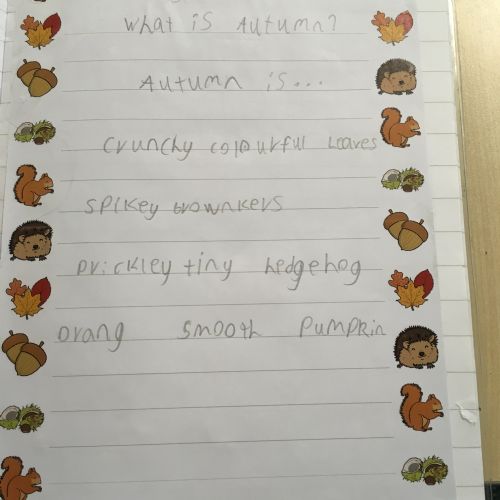 what is Autumn?
Autumn is...
crunchy colourful leaves
spikey brownkers
prickley tiny hedgehog
orang smooth pumpkin